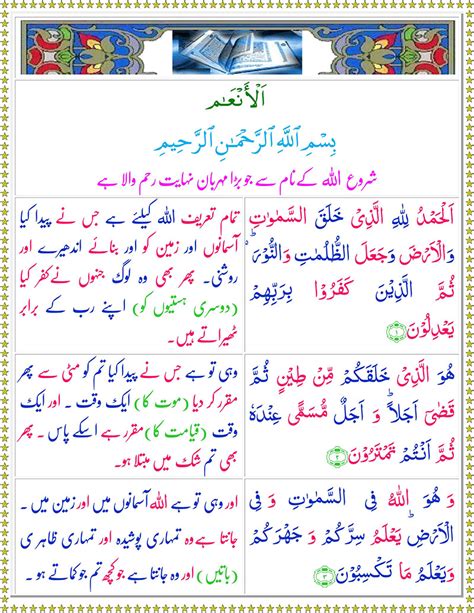 اَلْأَنْعَـٰم
بِسْمِ ٱللَّهِ ٱلرَّحْمَـٰنِ ٱلرَّحِيمِ
شروع الله کے نام سے جو بڑا مہربان نہایت رحم والا ہے
اَلْحَمْدُ لِلّٰهِ الَّذِىْ خَلَقَ السَّمٰوٰتِ
وَالْاَرْضَ وَجَعَلَ الظُّلُمٰتِ وَالنُّوْرَ ؕ
ثُمَّ الَّذِيْنَ كَفَرُوْا بِرَبِّهِمْ
يَعْدِلُوْنَ ﴿۱﴾
تمام تعریف الله کیلئے ہے جس نے پیدا کیا
آسمانوں اور زمین کو اور بنائے اندھیرے اور
روشنی۔ پھر بھی وہ لوگ جنہوں نے کفر کیا
(دوسری ہستیوں کو) اپنے رب کے برابر
ٹھیراتے ہیں۔
هُوَ الَّذِىْ خَلَقَكُمْ مِّنْ طِيْنٍ ثُمَّ
قَضٰۤى اَجَلًا ؕ وَ اَجَلٌ مُّسَمًّى عِنْدَهٗ
ثُمَّ اَنْتُمْ تَمْتَرُوْنَ ﴿۲﴾
وہی تو ہے جس نے پیدا کیا تم کو مٹی سے پھر
مقرر کر دیا (موت کا) ایک وقت ۔ اور ایک
وقت (قیامت کا) مقرر ہے اسکے پاس ۔ پھر
بھی تم شک میں مبتلا ہو۔
وَ هُوَ اللّٰهُ فِى السَّمٰوٰتِ وَ فِى
الْاَرْضِ ؕ يَعْلَمُ سِرَّكُمْ وَ جَهْرَكُمْ
وَيَعْلَمُ مَا تَكْسِبُوْنَ ﴿۳﴾
اور وہی تو ہے الله آسمانوں میں اور زمین میں ۔
جانتا ہے وہ تمہاری پوشیدہ اور تمہاری ظاہری
(باتیں) اور وہ جانتا ہے جو کچھ تم جو کماتے ہو۔